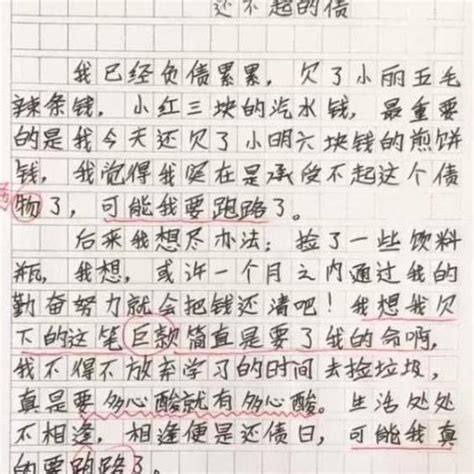 还不起的债
我已经负债累累，欠了小丽五毛
辣条钱，小红三块的汽水钱，最重要
的是我今天还欠了小明六块钱的煎饼
钱，我觉得我实在是承受不起这个债
物了，可能我要跑路了。
后来我想尽办法：捡了一些饮料
瓶，我想，或许一个月之内通过我的
勤奋努力就会把钱还清吧！我想我欠
下的这笔巨款简直是要了我的命啊，
我不得不放弃学习的时间去捡垃圾，
真是要多心酸就有多心酸。生活处处
不相逢，相逢便是还债日，可能我真
的要跑路了。